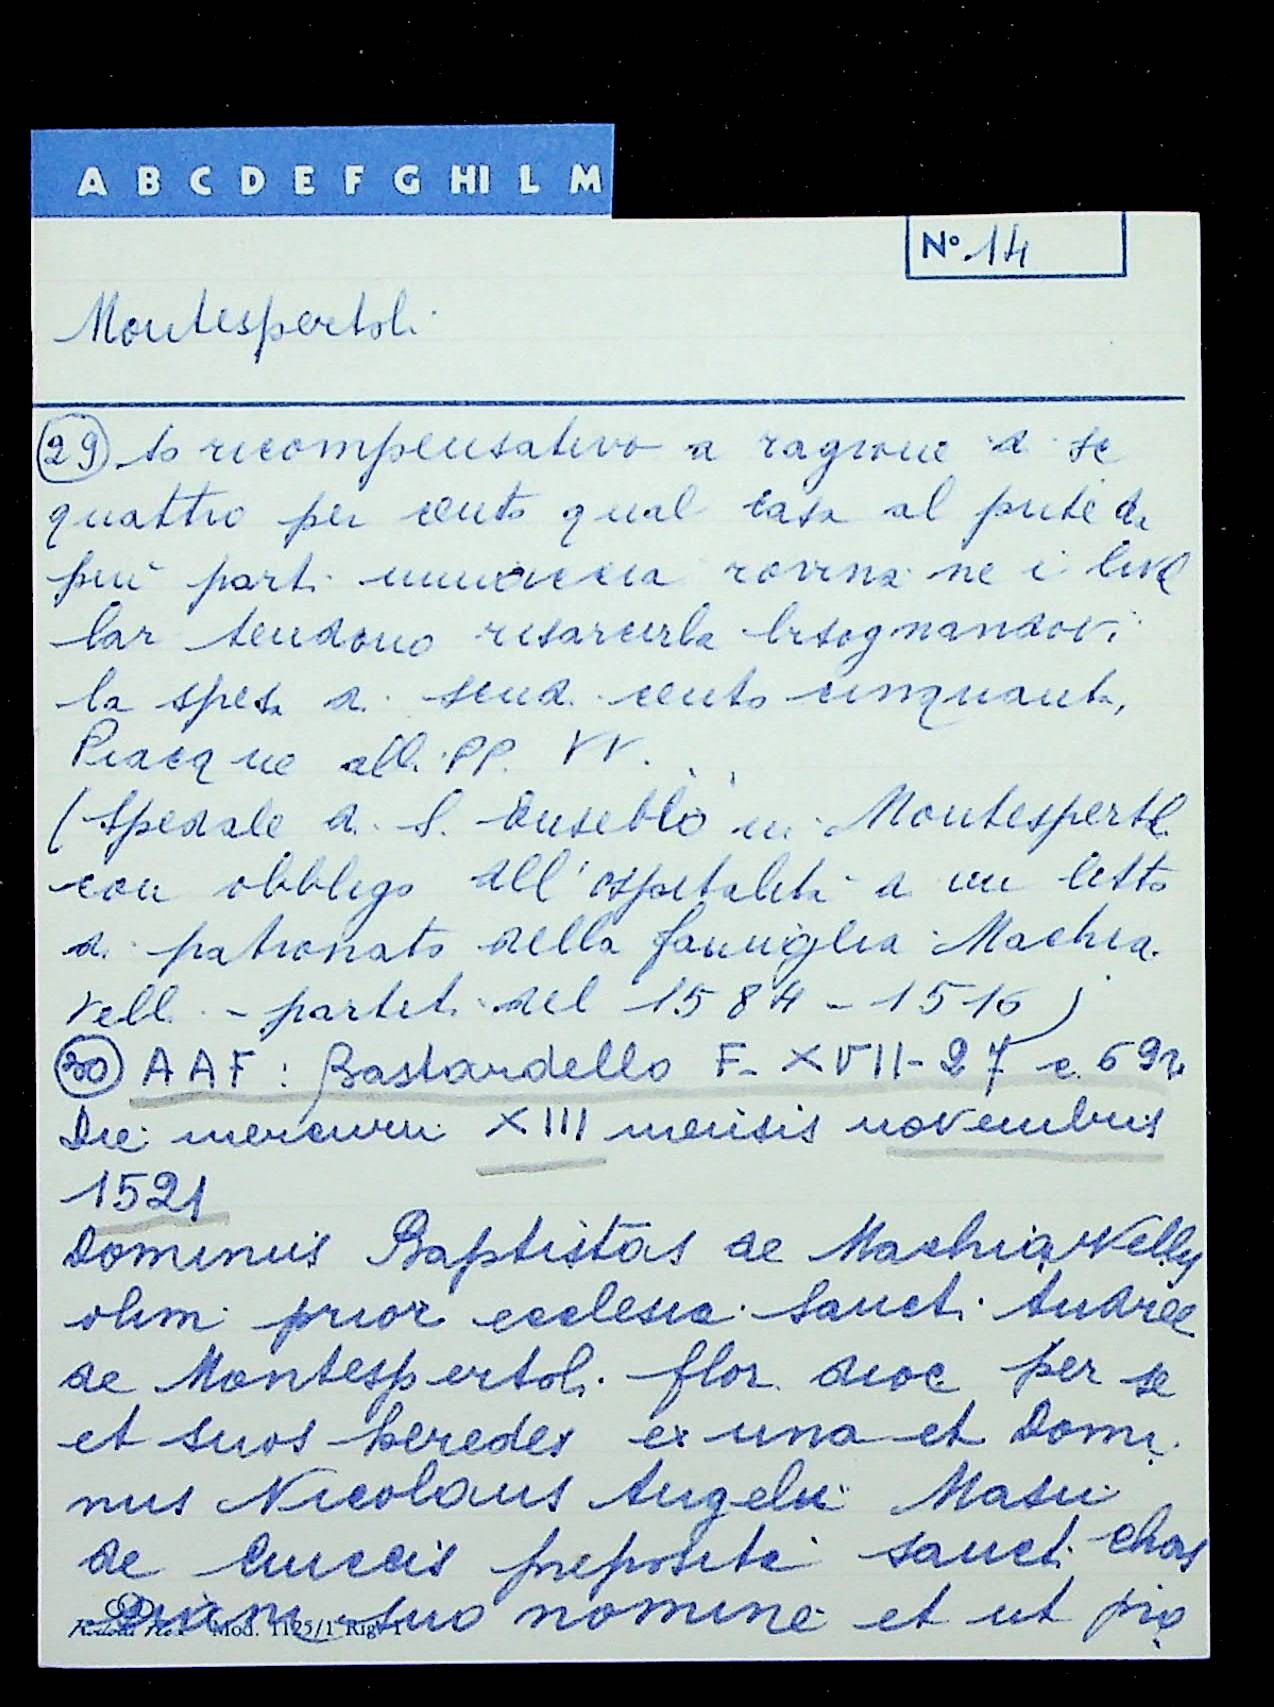 A B C D E F G HI L M
N° 14
Montespertoli
29 to ricompensativo a ragione di sc
quattro per cento qual casa al pnte da
più parti minaccia rovina ne i livel
lari tendono risarcirla bisognandovi
la spesa di scudi cento cinquanta,
Piacque alli PP. VV.
(Spedale di S. Eusebio in Montespertoli
con obbligo all'ospitalità di un letto
di patronato della famiglia Machia
velli - partiti del 1584 - 1516)
30 AAF: Bastardello F. XVII-27 c. 69r.
Die mercurii XIII mensis novembris
1521
Dominus Baptistas de Machiavellis
olim prior ecclesie Sancti Andree
de Montespertoli flor dioc per se
et suos heredes ex una et Domi
nus Nicolaus Angelii Masii
de Cuccis prepositi sancti
suo nomine et ut pro
Mod. 1125/1 Rig. 1